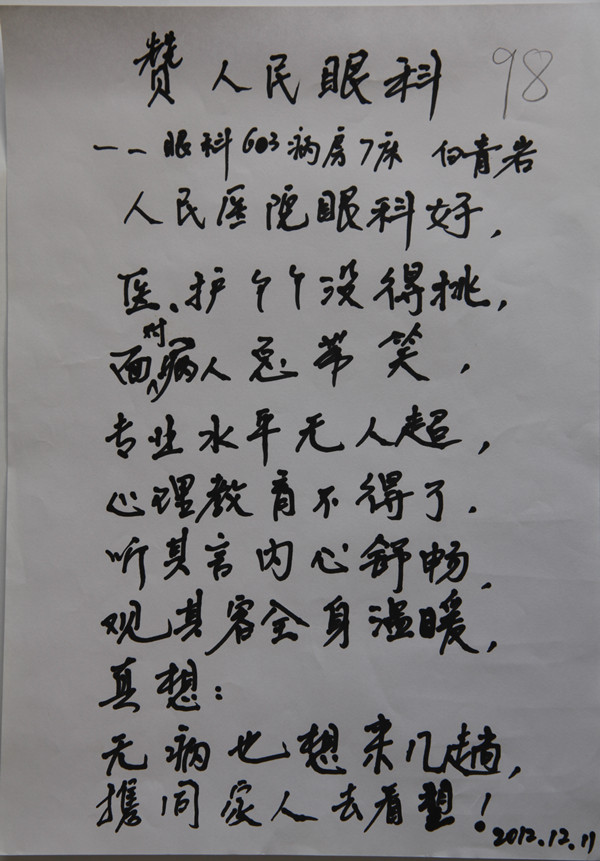 赞人民眼科
98
——眼科603病房7床 白青岩
人民医院眼科好，
医、护个个没得挑，
面对病人总带笑，
专业水平无人超，
心理教育不得了．
听其言内心舒畅，
观其容全身温暖，
真想：
无病也想来几趟，
携同家人去看望！
2012.12.11